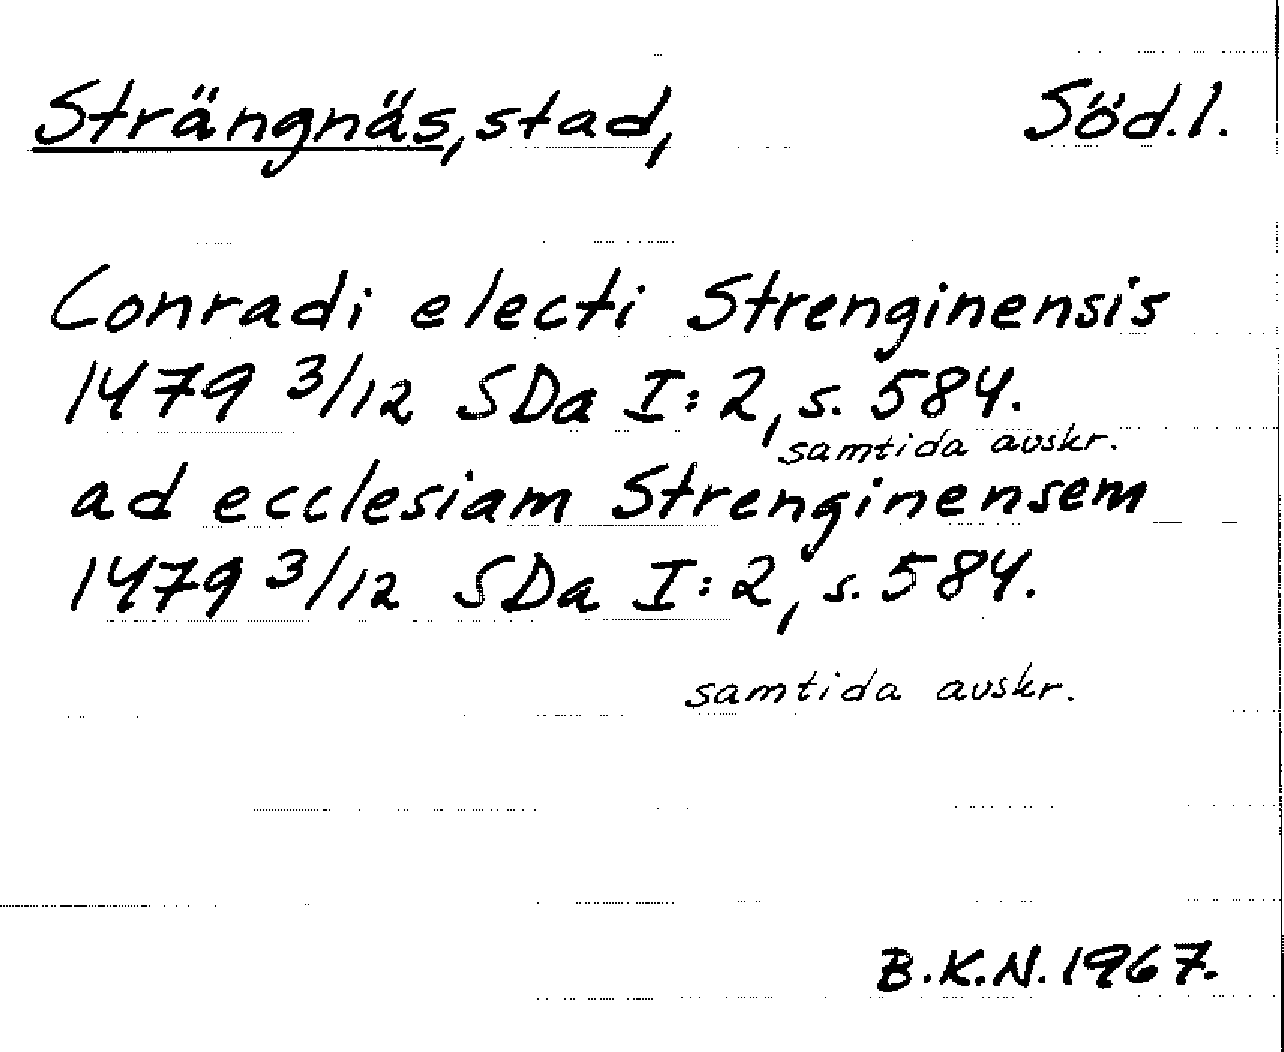 Strängnäs, stad, Söd.l.
Conradi electi Strenginensis
1479 3/12 SDa I:2, s. 584.
samtida avskr.
ad ecclesiam Strenginensem
1479 3/12 SDa I:2, s. 584.
samtida avskr.
B.K.N. 1967.